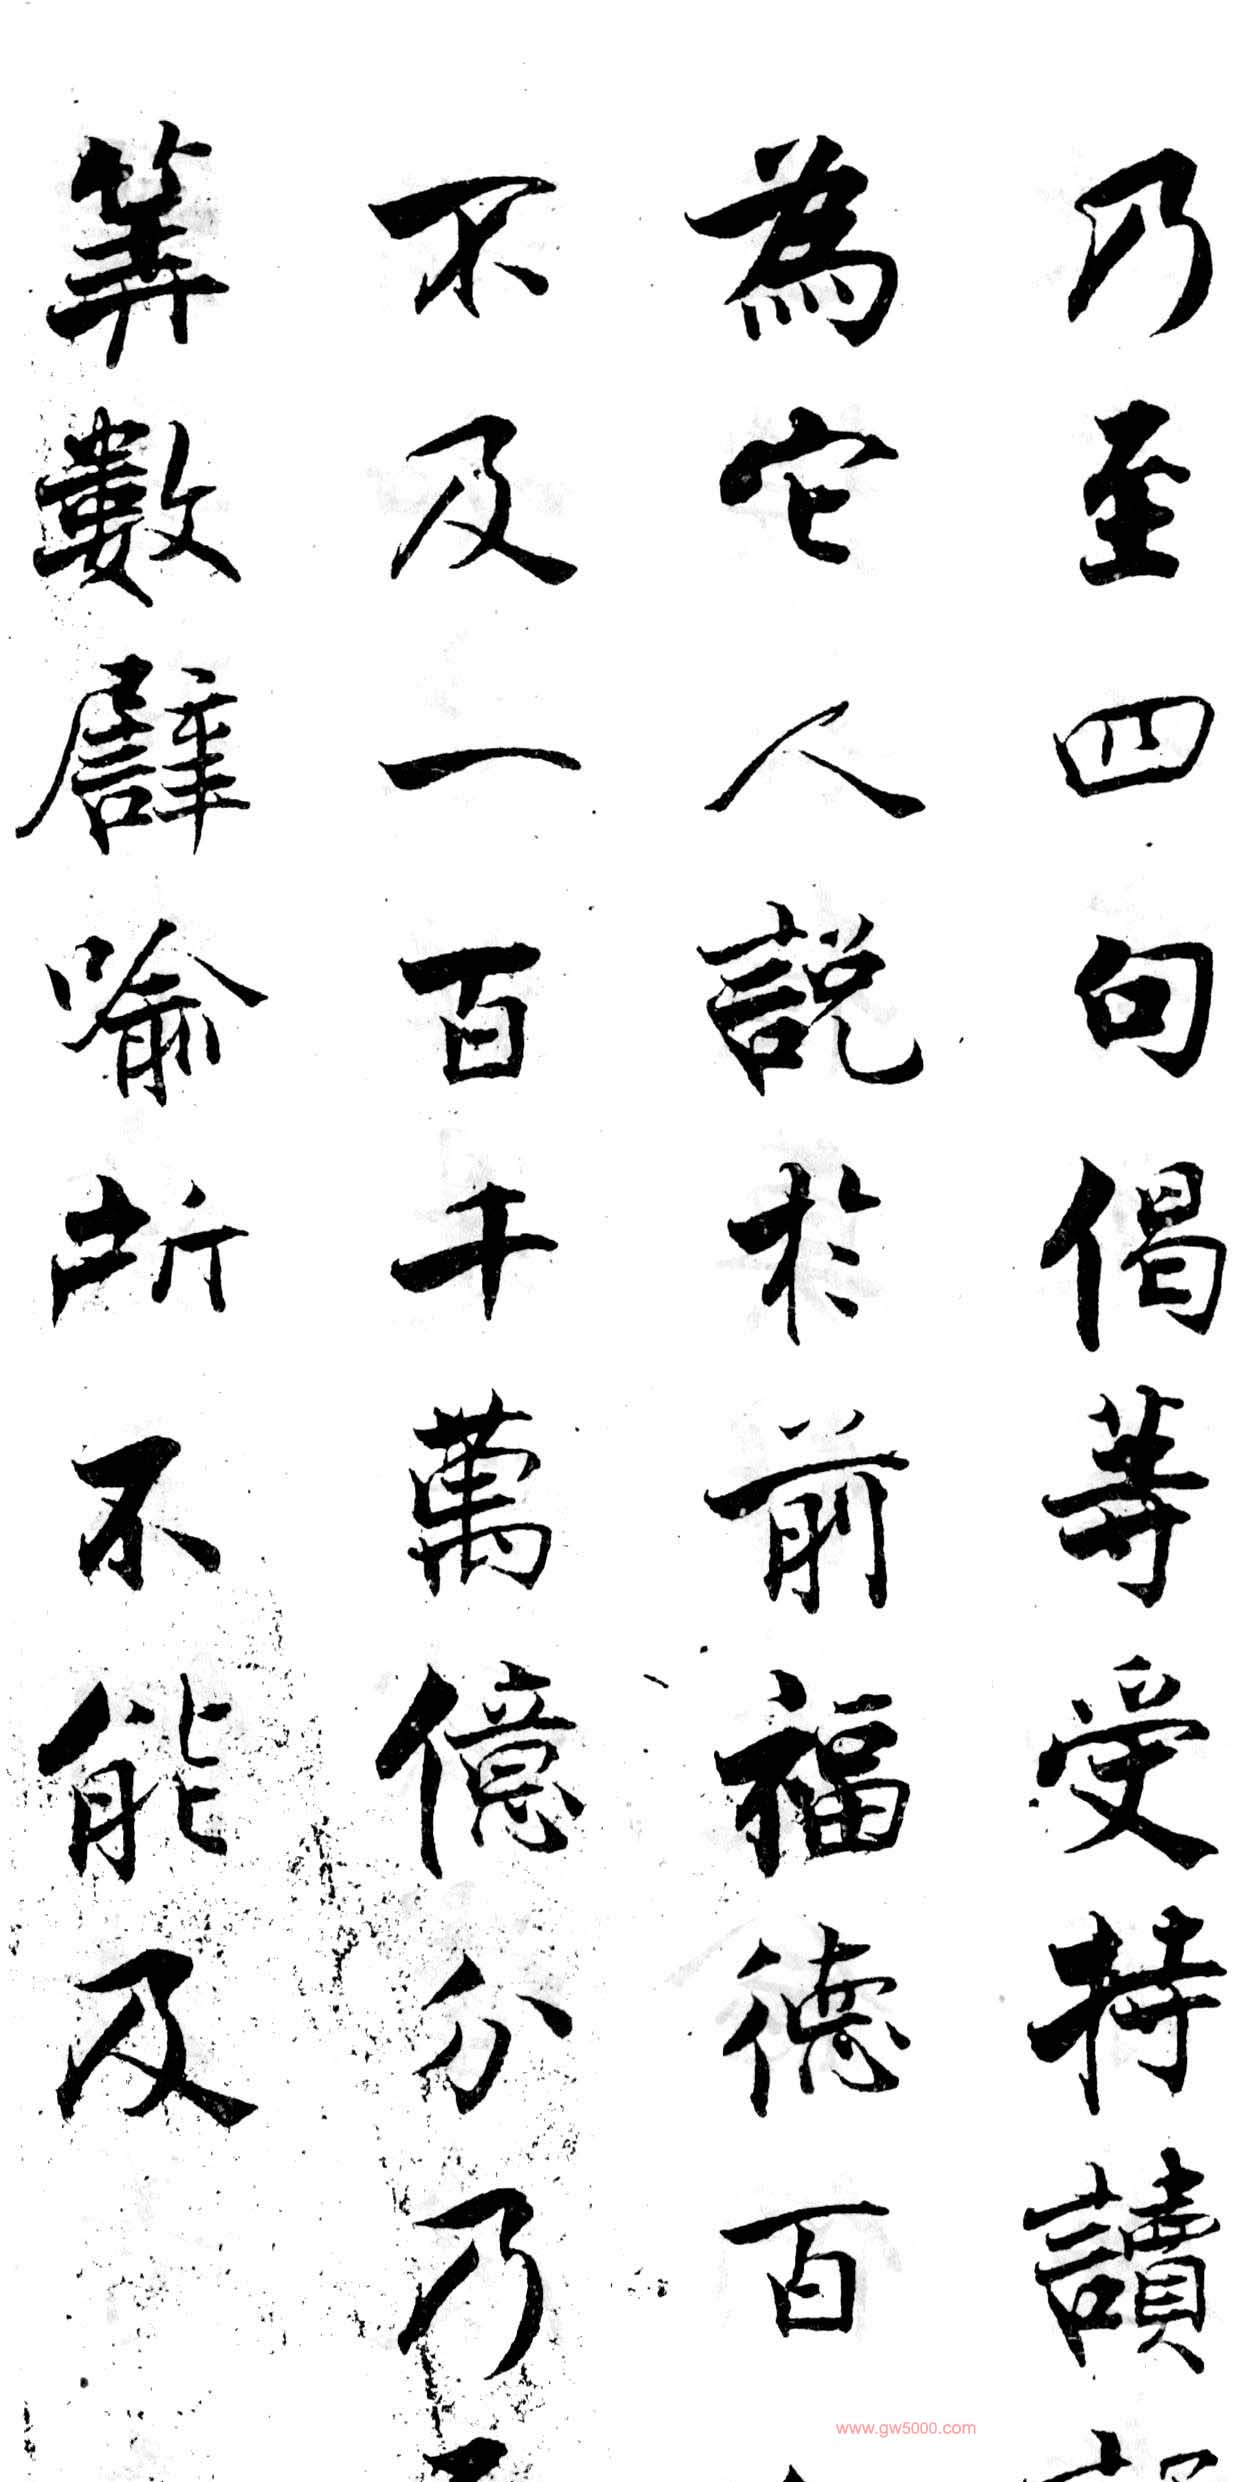 乃至四句偈等受持讀
為它人說於前福德百
不及一百千萬億分乃
筭數譬喻所不能及
www.gw5000.com